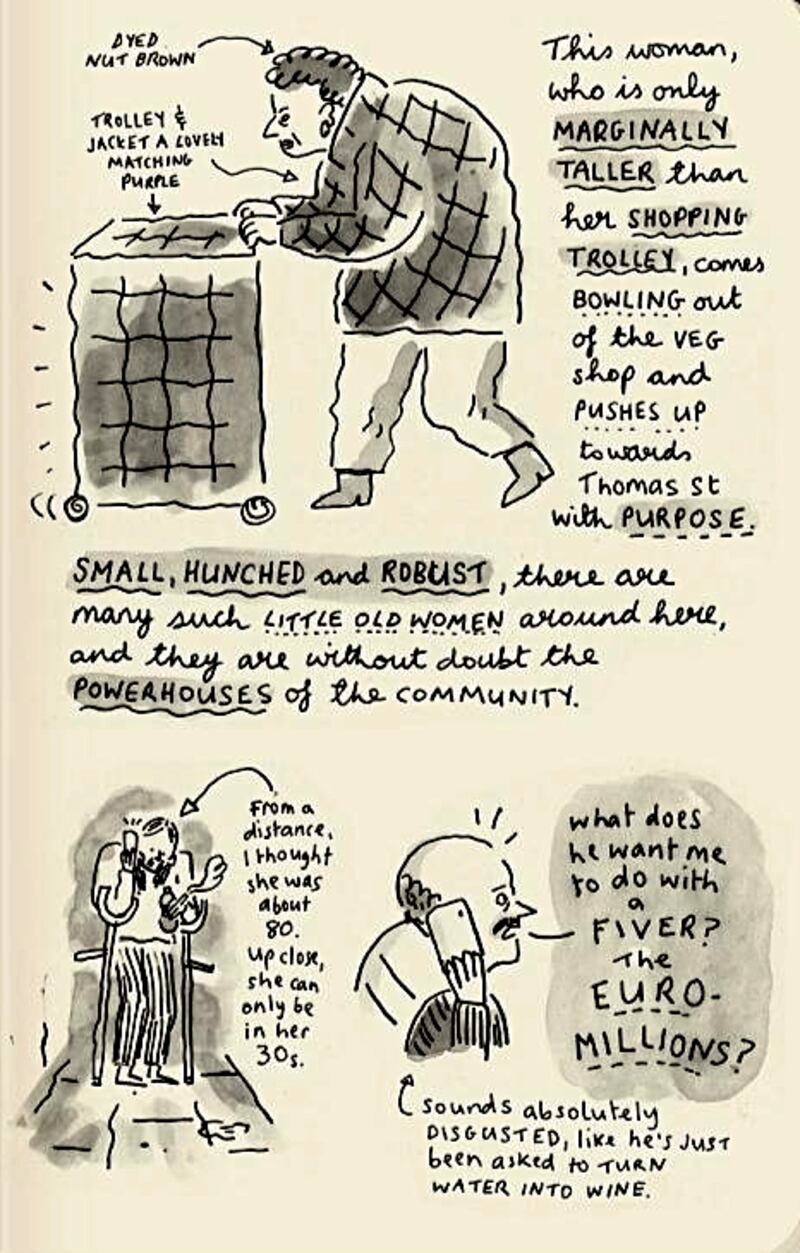 DYED
NUT BROWN
TROLLEY &
JACKET A LOVELY
MATCHING
PURPLE
This woman,
who is only
MARGINALLY
TALLER than
her SHOPPING
TROLLEY, comes
BOWLING out
of the VEG
shop and
PUSHES UP
towards
Thomas St
with PURPOSE.
SMALL, HUNCHED and ROBUST, there are
many such LITTLE OLD WOMEN around here,
and they are without doubt the
POWERHOUSES of the COMMUNITY.
From a
distance,
I thought
she was
about
80.
Up close,
she can
only be
in her
30s.
what does
he want me
to do with
a
FIVER?
The
EURO-
MILLIONS?
sounds absolutely
DISGUSTED, like he's JUST
been asked to TURN
WATER INTO WINE.